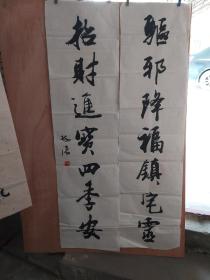 驅邪降福鎮宅靈
招財進寶四季安